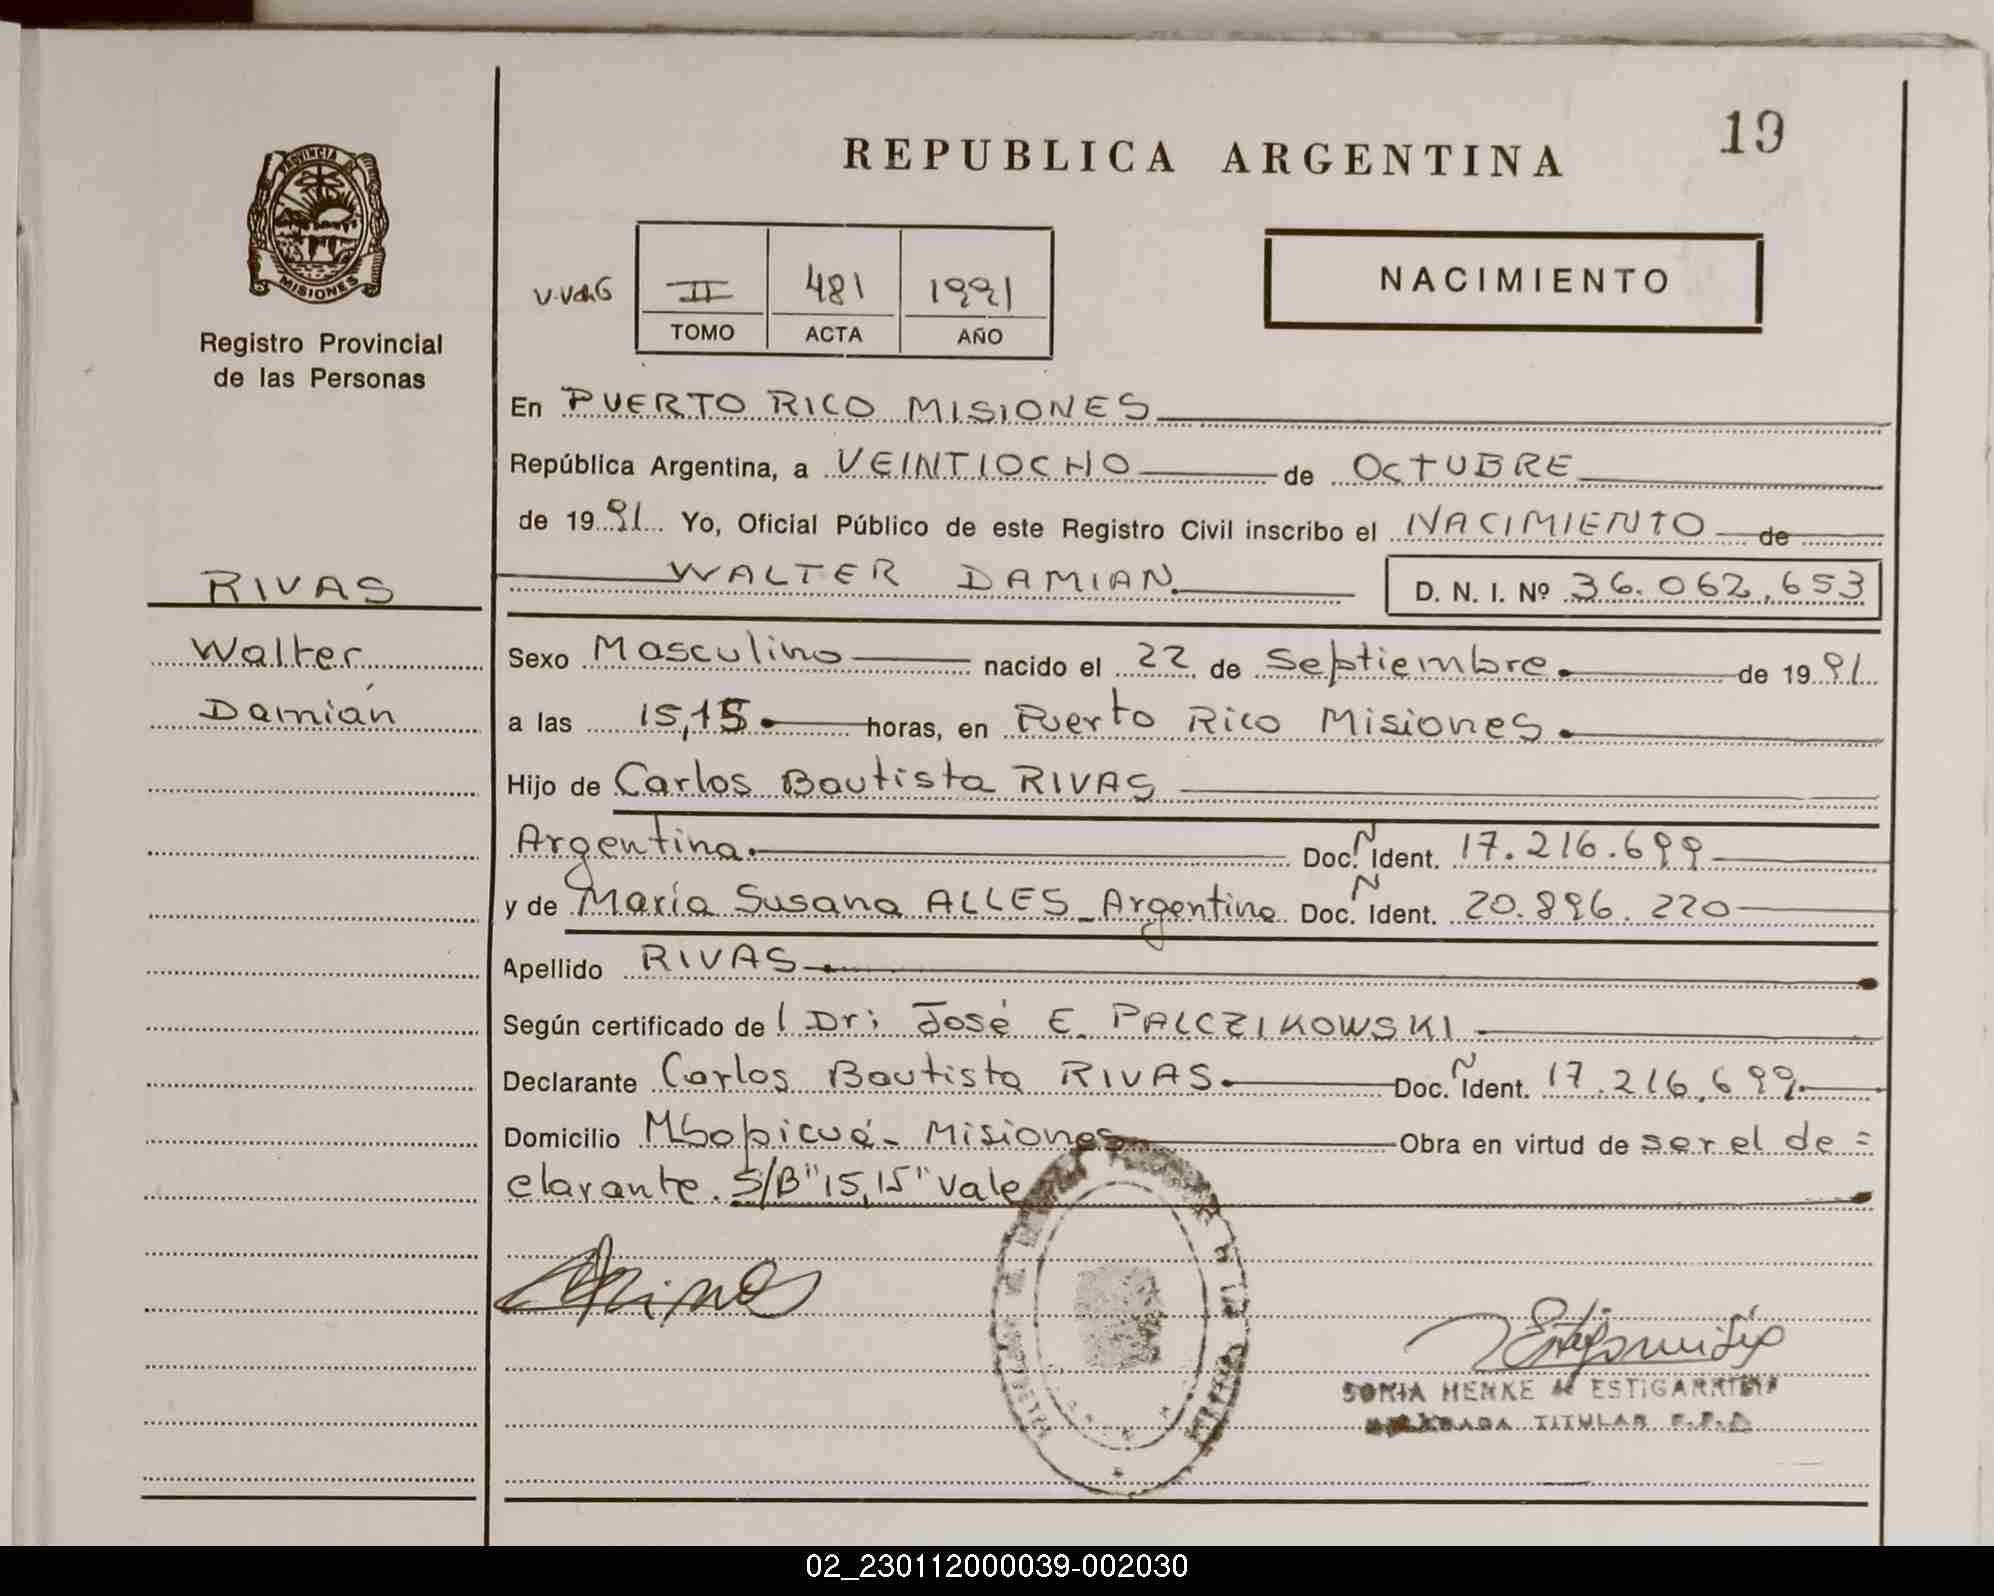 19
REPUBLICA ARGENTINA
PROVINCIA DE
MISIONES
Registro Provincial
de las Personas
II 481 1991
TOMO ACTA AÑO
NACIMIENTO
En PUERTO RICO MISIONES
República Argentina, a VEINTIOCHO de OCTUBRE
de 1991 Yo, Oficial Público de este Registro Civil inscribo el NACIMIENTO de
WALTER DAMIAN. D. N. I. Nº 36.062.653
RIVAS
Walter
Damián
Sexo Masculino nacido el 22 de Septiembre. de 1991
a las 15,15 horas, en Puerto Rico Misiones.
Hijo de Carlos Bautista RIVAS
Argentina. Doc. Ñ Ident. 17.216.699
y de María Susana ALLES - Argentina Doc. Ñ Ident. 20.896.220
Apellido RIVAS
Según certificado de l Dr; José E. PALCZIKOWSKI
Declarante Carlos Bautista RIVAS. Doc. Ñ Ident. 17.216.699.
Domicilio Mbopicuá - Misiones Obra en virtud de ser el de =
clarante. S/B "15,15" Vale
SONIA HENKE de ESTIGARRIBIA
TITULAR
02_230112000039-002030